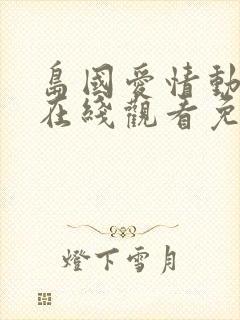 島國愛情動
在綫觀看免
燈下雪月